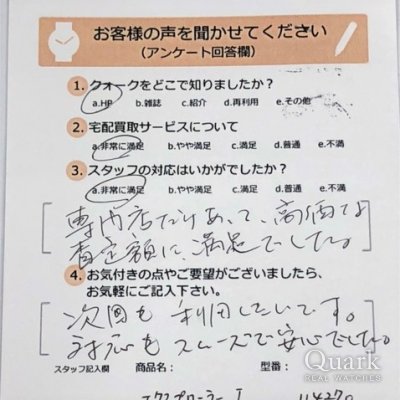 お客様の声を聞かせてください
(アンケート回答欄)
1. クォークをどこで知りましたか?
a.HP b.雑誌 c.紹介 d.再利用 e.その他
2. 宅配買取サービスについて
a.非常に満足 b.やや満足 c.満足 d.普通 e.不満
3. スタッフの対応はいかがでしたか?
a.非常に満足 b.やや満足 c.満足 d.普通 e.不満
専門店だけあって、高価な
査定額に、満足でした。
4. お気付きの点やご要望がございましたら、
お気軽にご記入下さい。
次回も利用したいです。
対応もスムーズで安心でした。
スタッフ記入欄 商品名: 型番:
エクスプローラー I 114270
Quark
REAL WATCHES